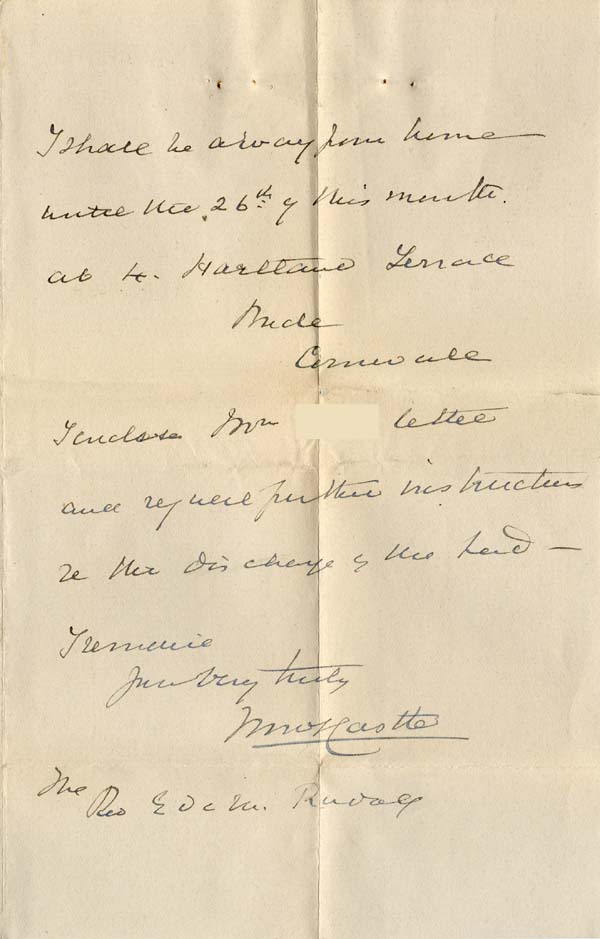 I shall be away from home
until the 26th of this month.
at 4. Hartland Terrace
Bude
Cornwall
I enclose Wm letter
and request further instructions
re the discharge of the lad —
I remain
Yours very truly
Castle
The
Rev E de M. Rudolf